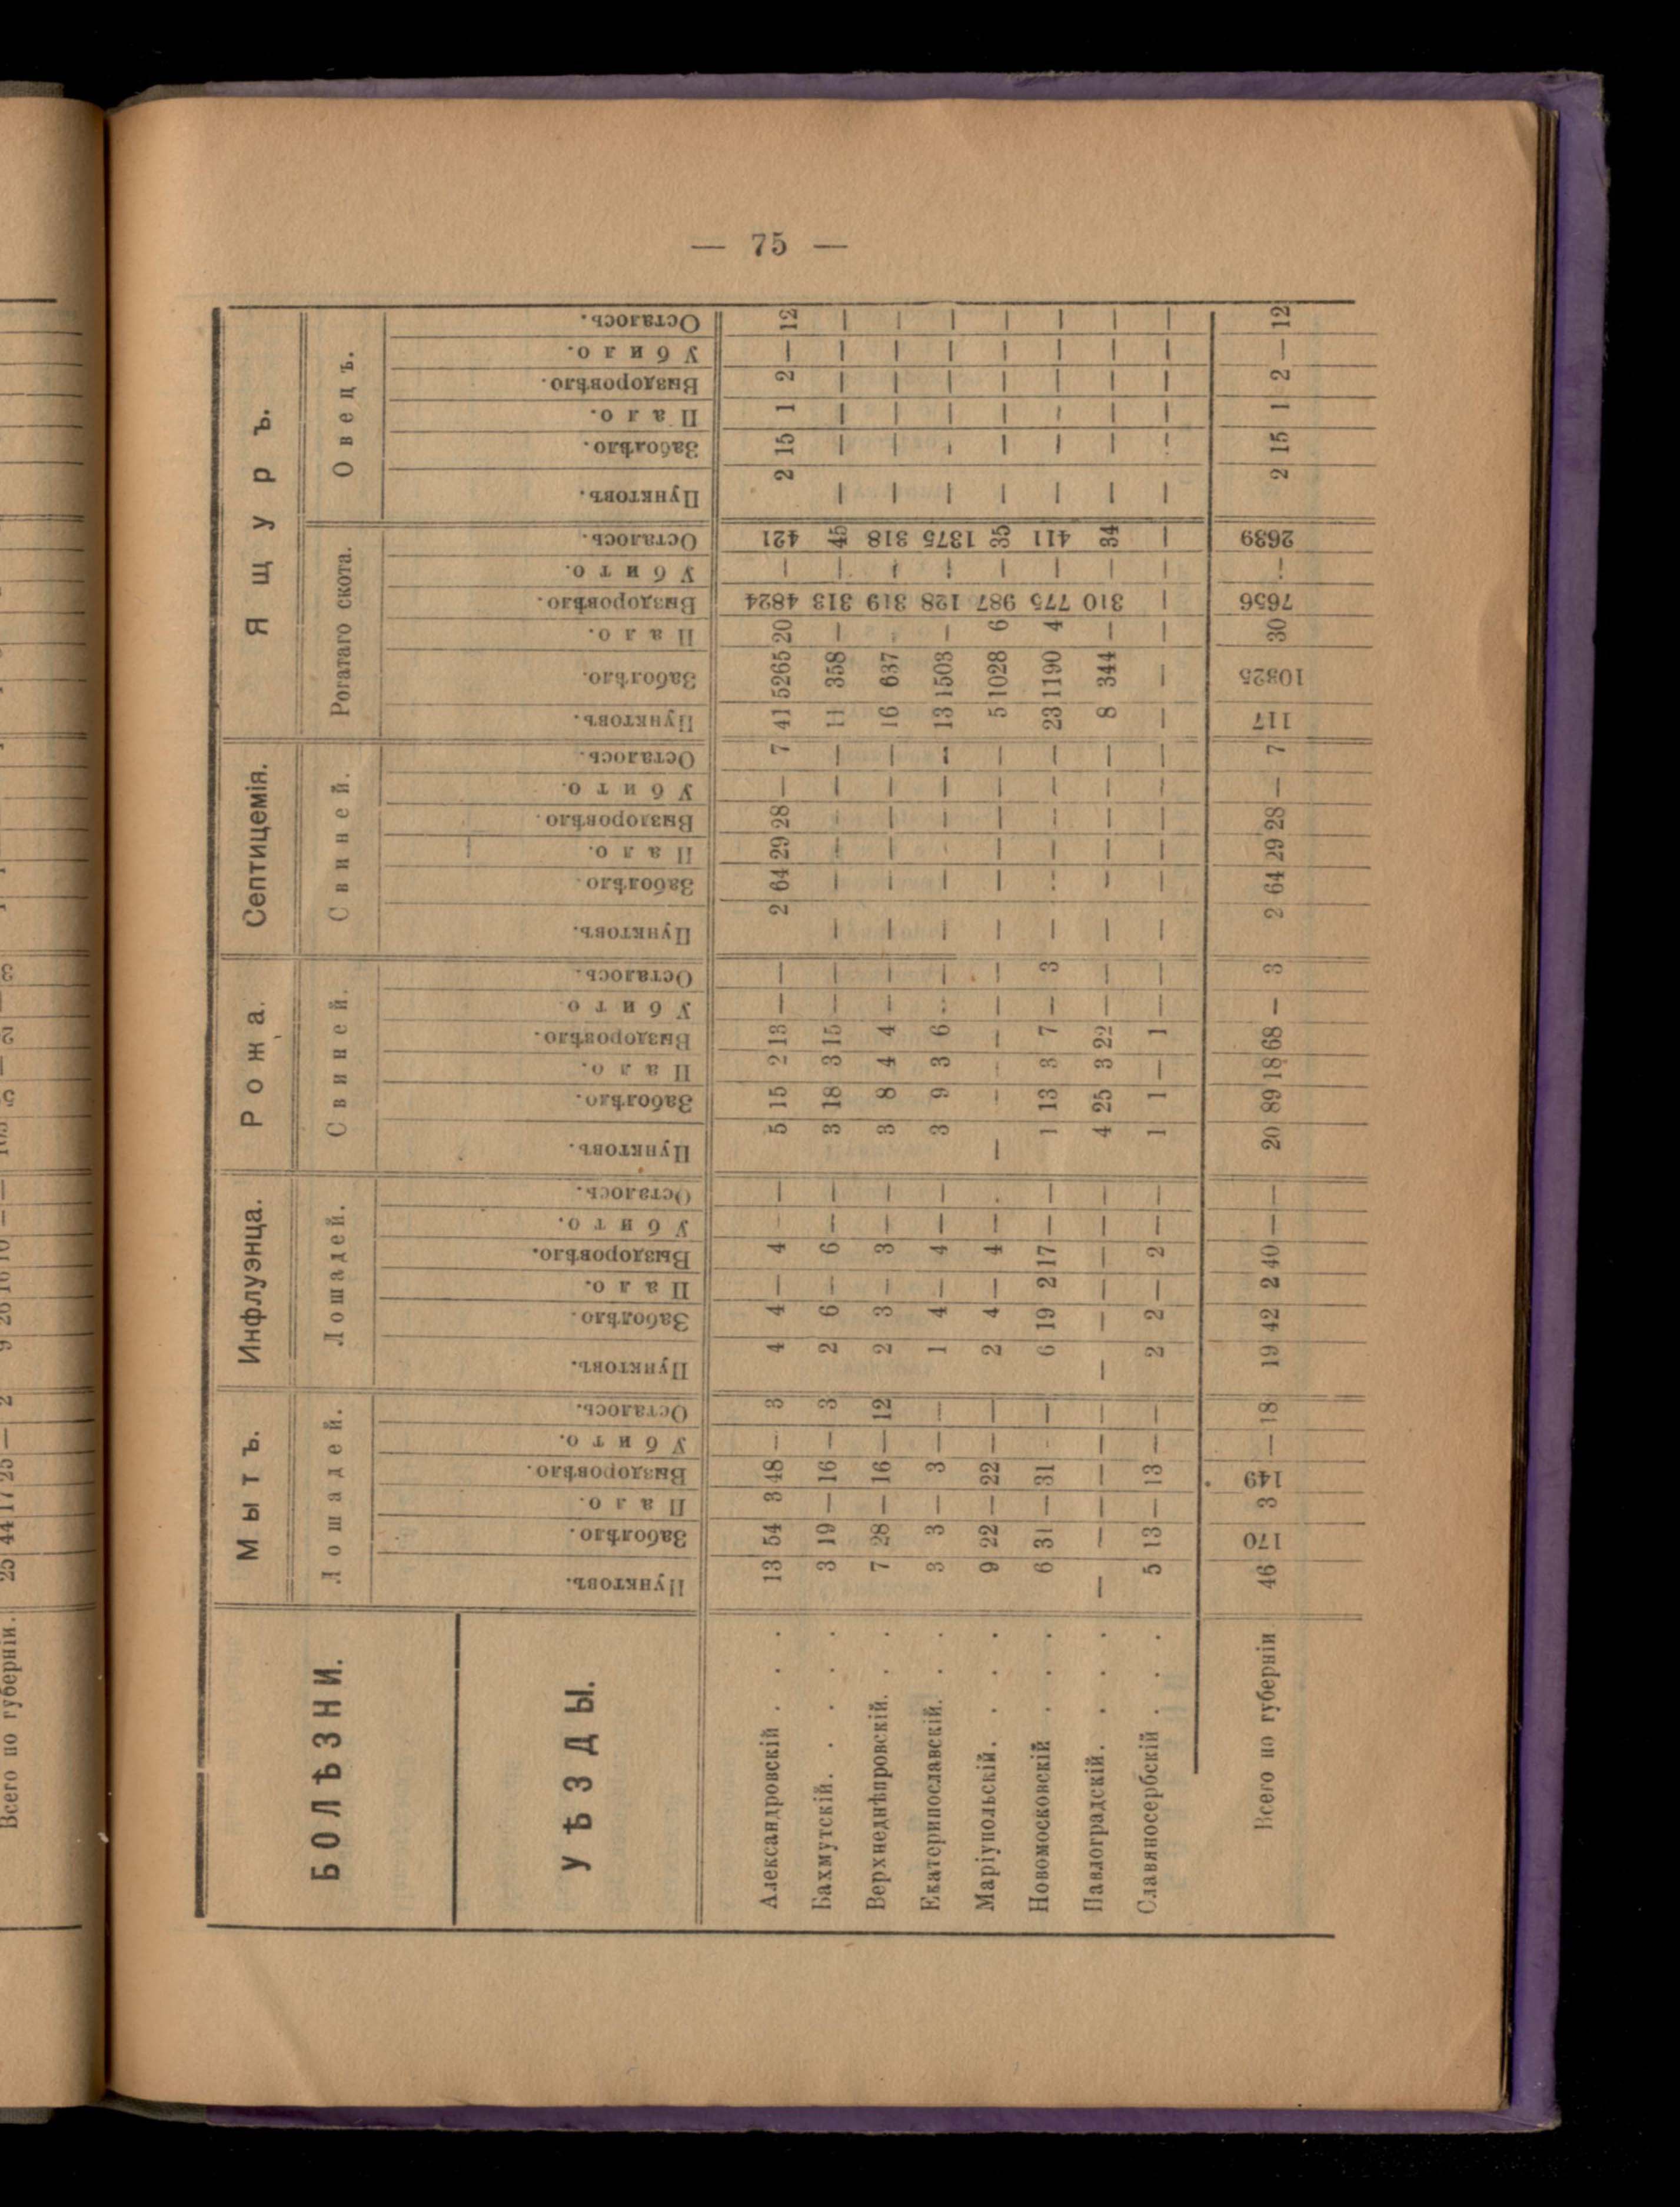 — 75 —
БОЛѢЗНИ. Мытъ. Инфлуэнца. Рожа. Септицемія. Ящуръ.
Лошадей. Лошадей. Свиней. Свиней. Рогатаго скота. Овецъ.
УѢЗДЫ. Пунктовъ. Заболѣло. Пало. Выздоровѣло. Убито. Осталось. Пунктовъ. Заболѣло. Пало. Выздоровѣло. Убито. Осталось. Пунктовъ. Заболѣло. Пало. Выздоровѣло. Убито. Осталось. Пунктовъ. Заболѣло. Пало. Выздоровѣло. Убито. Осталось. Пунктовъ. Заболѣло. Пало. Выздоровѣло. Убито. Осталось. Пунктовъ. Заболѣло. Пало. Выздоровѣло. Убило. Осталось.
Александровскій . . . 13 54 3 48 — 3 4 4 — 4 — — 5 15 2 13 — — 2 64 29 28 — 7 41 5265 20 4824 — 421 2 15 1 2 — 12
Бахмутскій. . . . 3 19 — 16 — 3 2 6 — 6 — — 3 18 3 15 — — — — — — — — 11 358 — 313 — 45 — — — — — —
Верхнеднѣпровскій. . . 7 28 — 16 — 12 2 3 — 3 — — 3 8 4 4 — — — — — — — — 16 637 — 319 — 318 — — — — — —
Екатеринославскій. . . 3 3 — 3 — — 1 4 — 4 — — 3 9 3 6 — — — — — — — — 13 1503 — 128 — 1375 — — — — — —
Маріупольскій. . . . 9 22 — 22 — — 2 4 — 4 — — — — — — — — — — — — — — 5 1028 6 987 — 35 — — — — — —
Новомосковскій . . . 6 31 — 31 — — 6 19 2 17 — — 1 13 3 7 — 3 — — — — — — 23 1190 4 775 — 411 — — — — — —
Павлоградскій. . . . — — — — — — — — — — — — 4 25 3 22 — — — — — — — — 8 344 — 310 — 34 — — — — — —
Славяносербскій . . . 5 13 — 13 — — 2 2 — 2 — — 1 1 — 1 — — — — — — — — — — — — — — — — — — — —
Всего по губерніи 46 170 3 149 — 18 19 42 2 40 — — 20 89 18 68 — 3 2 64 29 28 — 7 117 10325 30 7656 — 2639 2 15 1 2 — 12
Всего по губерніи.